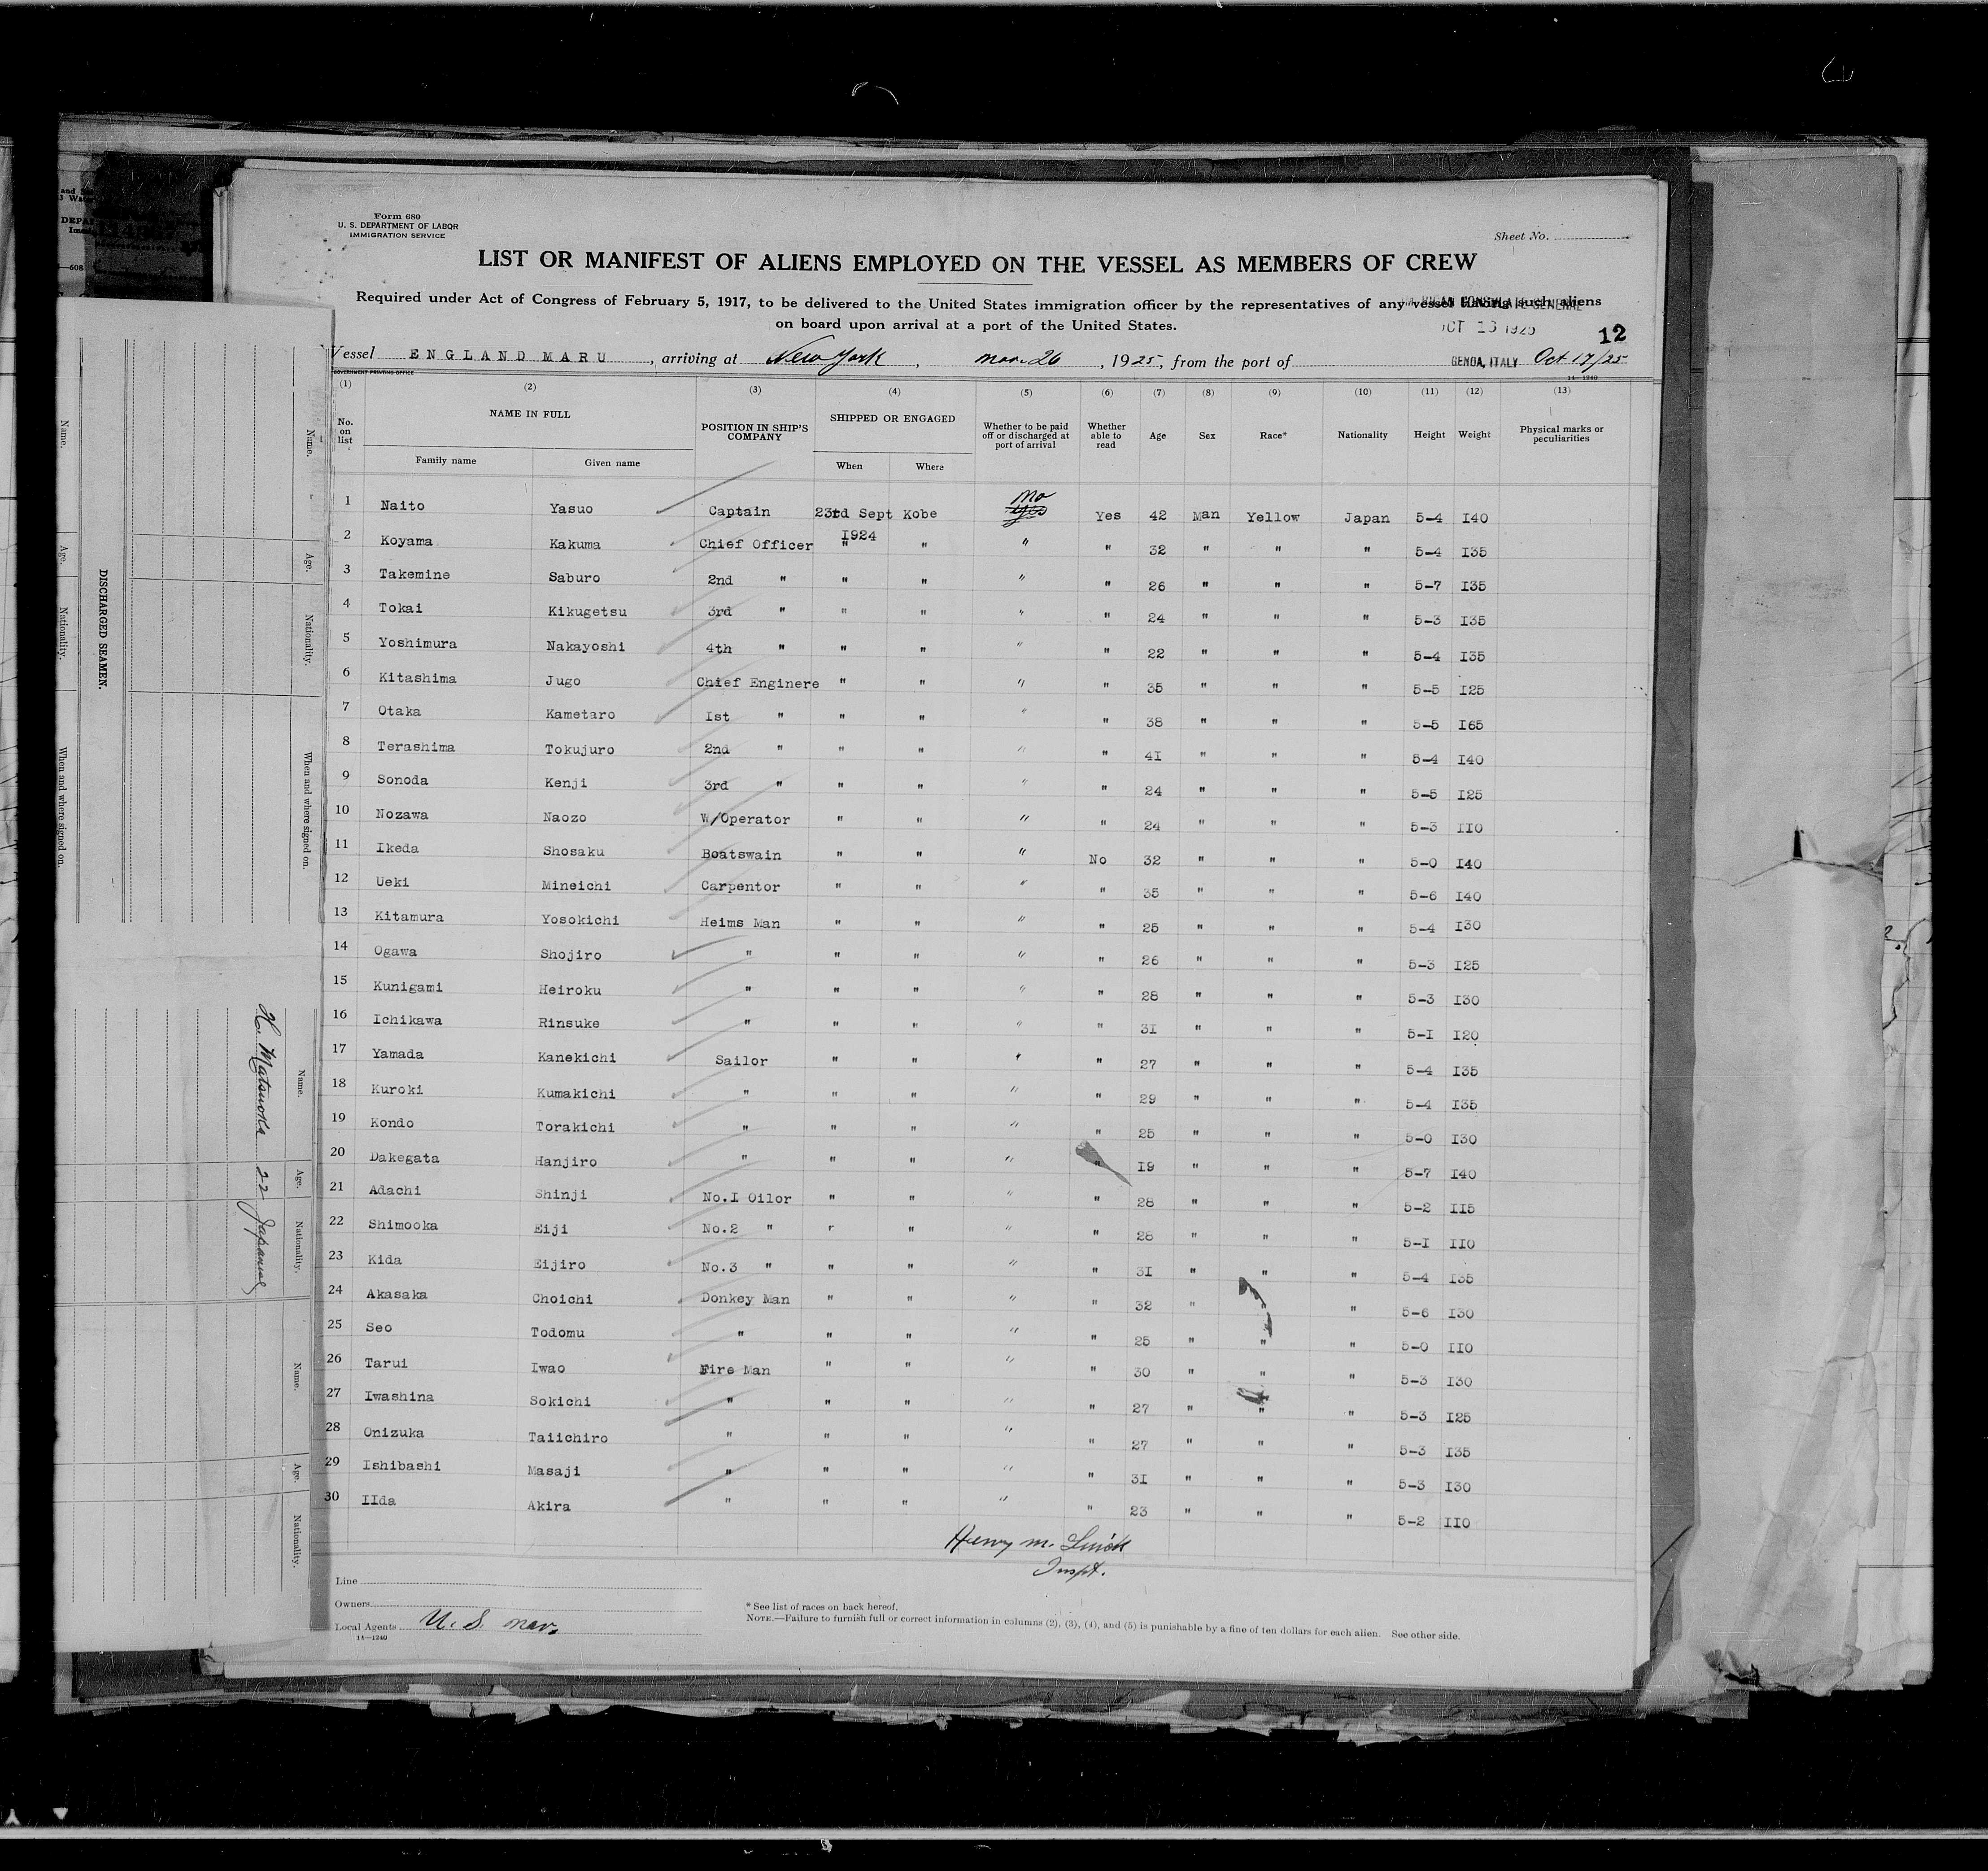 Form 680
U. S. DEPARTMENT OF LABOR
IMMIGRATION SERVICE
Sheet No.
LIST OR MANIFEST OF ALIENS EMPLOYED ON THE VESSEL AS MEMBERS OF CREW
Required under Act of Congress of February 5, 1917, to be delivered to the United States immigration officer by the representatives of any vessel having such aliens
on board upon arrival at a port of the United States.
CONSULATE GENERAL
OCT 13 1925
12
Vessel ENGLAND MARU, arriving at New York, 1925, from the port of GENOA, ITALY Oct 17/25
GOVERNMENT PRINTING OFFICE
14—1240
(1) (2) (3) (4) (5) (6) (7) (8) (9) (10) (11) (12) (13)
No. on list NAME IN FULL POSITION IN SHIP'S COMPANY SHIPPED OR ENGAGED Whether to be paid off or discharged at port of arrival Whether able to read Age Sex Race* Nationality Height Weight Physical marks or peculiarities
Family name Given name When Where
1 Naito Yasuo Captain 23rd Sept 1924 Kobe Yes No Yes 42 Man Yellow Japan 5-4 I40
2 Koyama Kakuma Chief Officer " " " " 32 " " " 5-4 I35
3 Takemine Saburo 2nd " " " " " 26 " " " 5-7 I35
4 Tokai Kikugetsu 3rd " " " " " 24 " " " 5-3 I35
5 Yoshimura Nakayoshi 4th " " " " " 22 " " " 5-4 I35
6 Kitashima Jugo Chief Enginere " " " " 35 " " " 5-5 I25
7 Otaka Kametaro Ist " " " " " 38 " " " 5-5 I65
8 Terashima Tokujuro 2nd " " " " " 4I " " " 5-4 I40
9 Sonoda Kenji 3rd " " " " " 24 " " " 5-5 I25
10 Nozawa Naozo W/Operator " " " " 24 " " " 5-3 II0
11 Ikeda Shosaku Boatswain " " " No 32 " " " 5-0 I40
12 Ueki Mineichi Carpentor " " " " 35 " " " 5-6 I40
13 Kitamura Yosokichi Heims Man " " " " 25 " " " 5-4 I30
14 Ogawa Shojiro " " " " " 26 " " " 5-3 I25
15 Kunigami Heiroku " " " " " 28 " " " 5-3 I30
16 Ichikawa Rinsuke " " " " " 3I " " " 5-I I20
17 Yamada Kanekichi Sailor " " " " 27 " " " 5-4 I35
18 Kuroki Kumakichi " " " " " 29 " " " 5-4 I35
19 Kondo Torakichi " " " " " 25 " " " 5-0 I30
20 Dakegata Hanjiro " " " " " I9 " " " 5-7 I40
21 Adachi Shinji No.I Oilor " " " " 28 " " " 5-2 II5
22 Shimooka Eiji No.2 " r " " " 28 " " " 5-I II0
23 Kida Eijiro No.3 " " " " " 3I " " " 5-4 I35
24 Akasaka Choichi Donkey Man " " " " 32 " " " 5-6 I30
25 Seo Todomu " " " " " 25 " " " 5-0 II0
26 Tarui Iwao Fire Man " " " " 30 " " " 5-3 I30
27 Iwashina Sokichi " " " " " 27 " " " 5-3 I25
28 Onizuka Taiichiro " " " " " 27 " " " 5-3 I35
29 Ishibashi Masaji " " " " " 3I " " " 5-3 I30
30 IIda Akira " " " " " 23 " " " 5-2 II0
Henry M.
Inspt.
Line
Owners
Local Agents U. S. Nav.
14—1240
* See list of races on back hereof.
NOTE.—Failure to furnish full or correct information in columns (2), (3), (4), and (5) is punishable by a fine of ten dollars for each alien. See other side.
DISCHARGED SEAMEN.
Name. Age. Nationality. When and where signed on.
Name. Age. Nationality. When and where signed on.
Name. Age. Nationality.
H. Matsuoka 22 Japanese
Name. Age. Nationality.